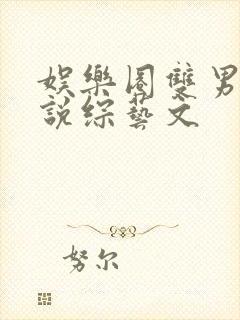 娛樂圈雙男
說綜藝文
努尔